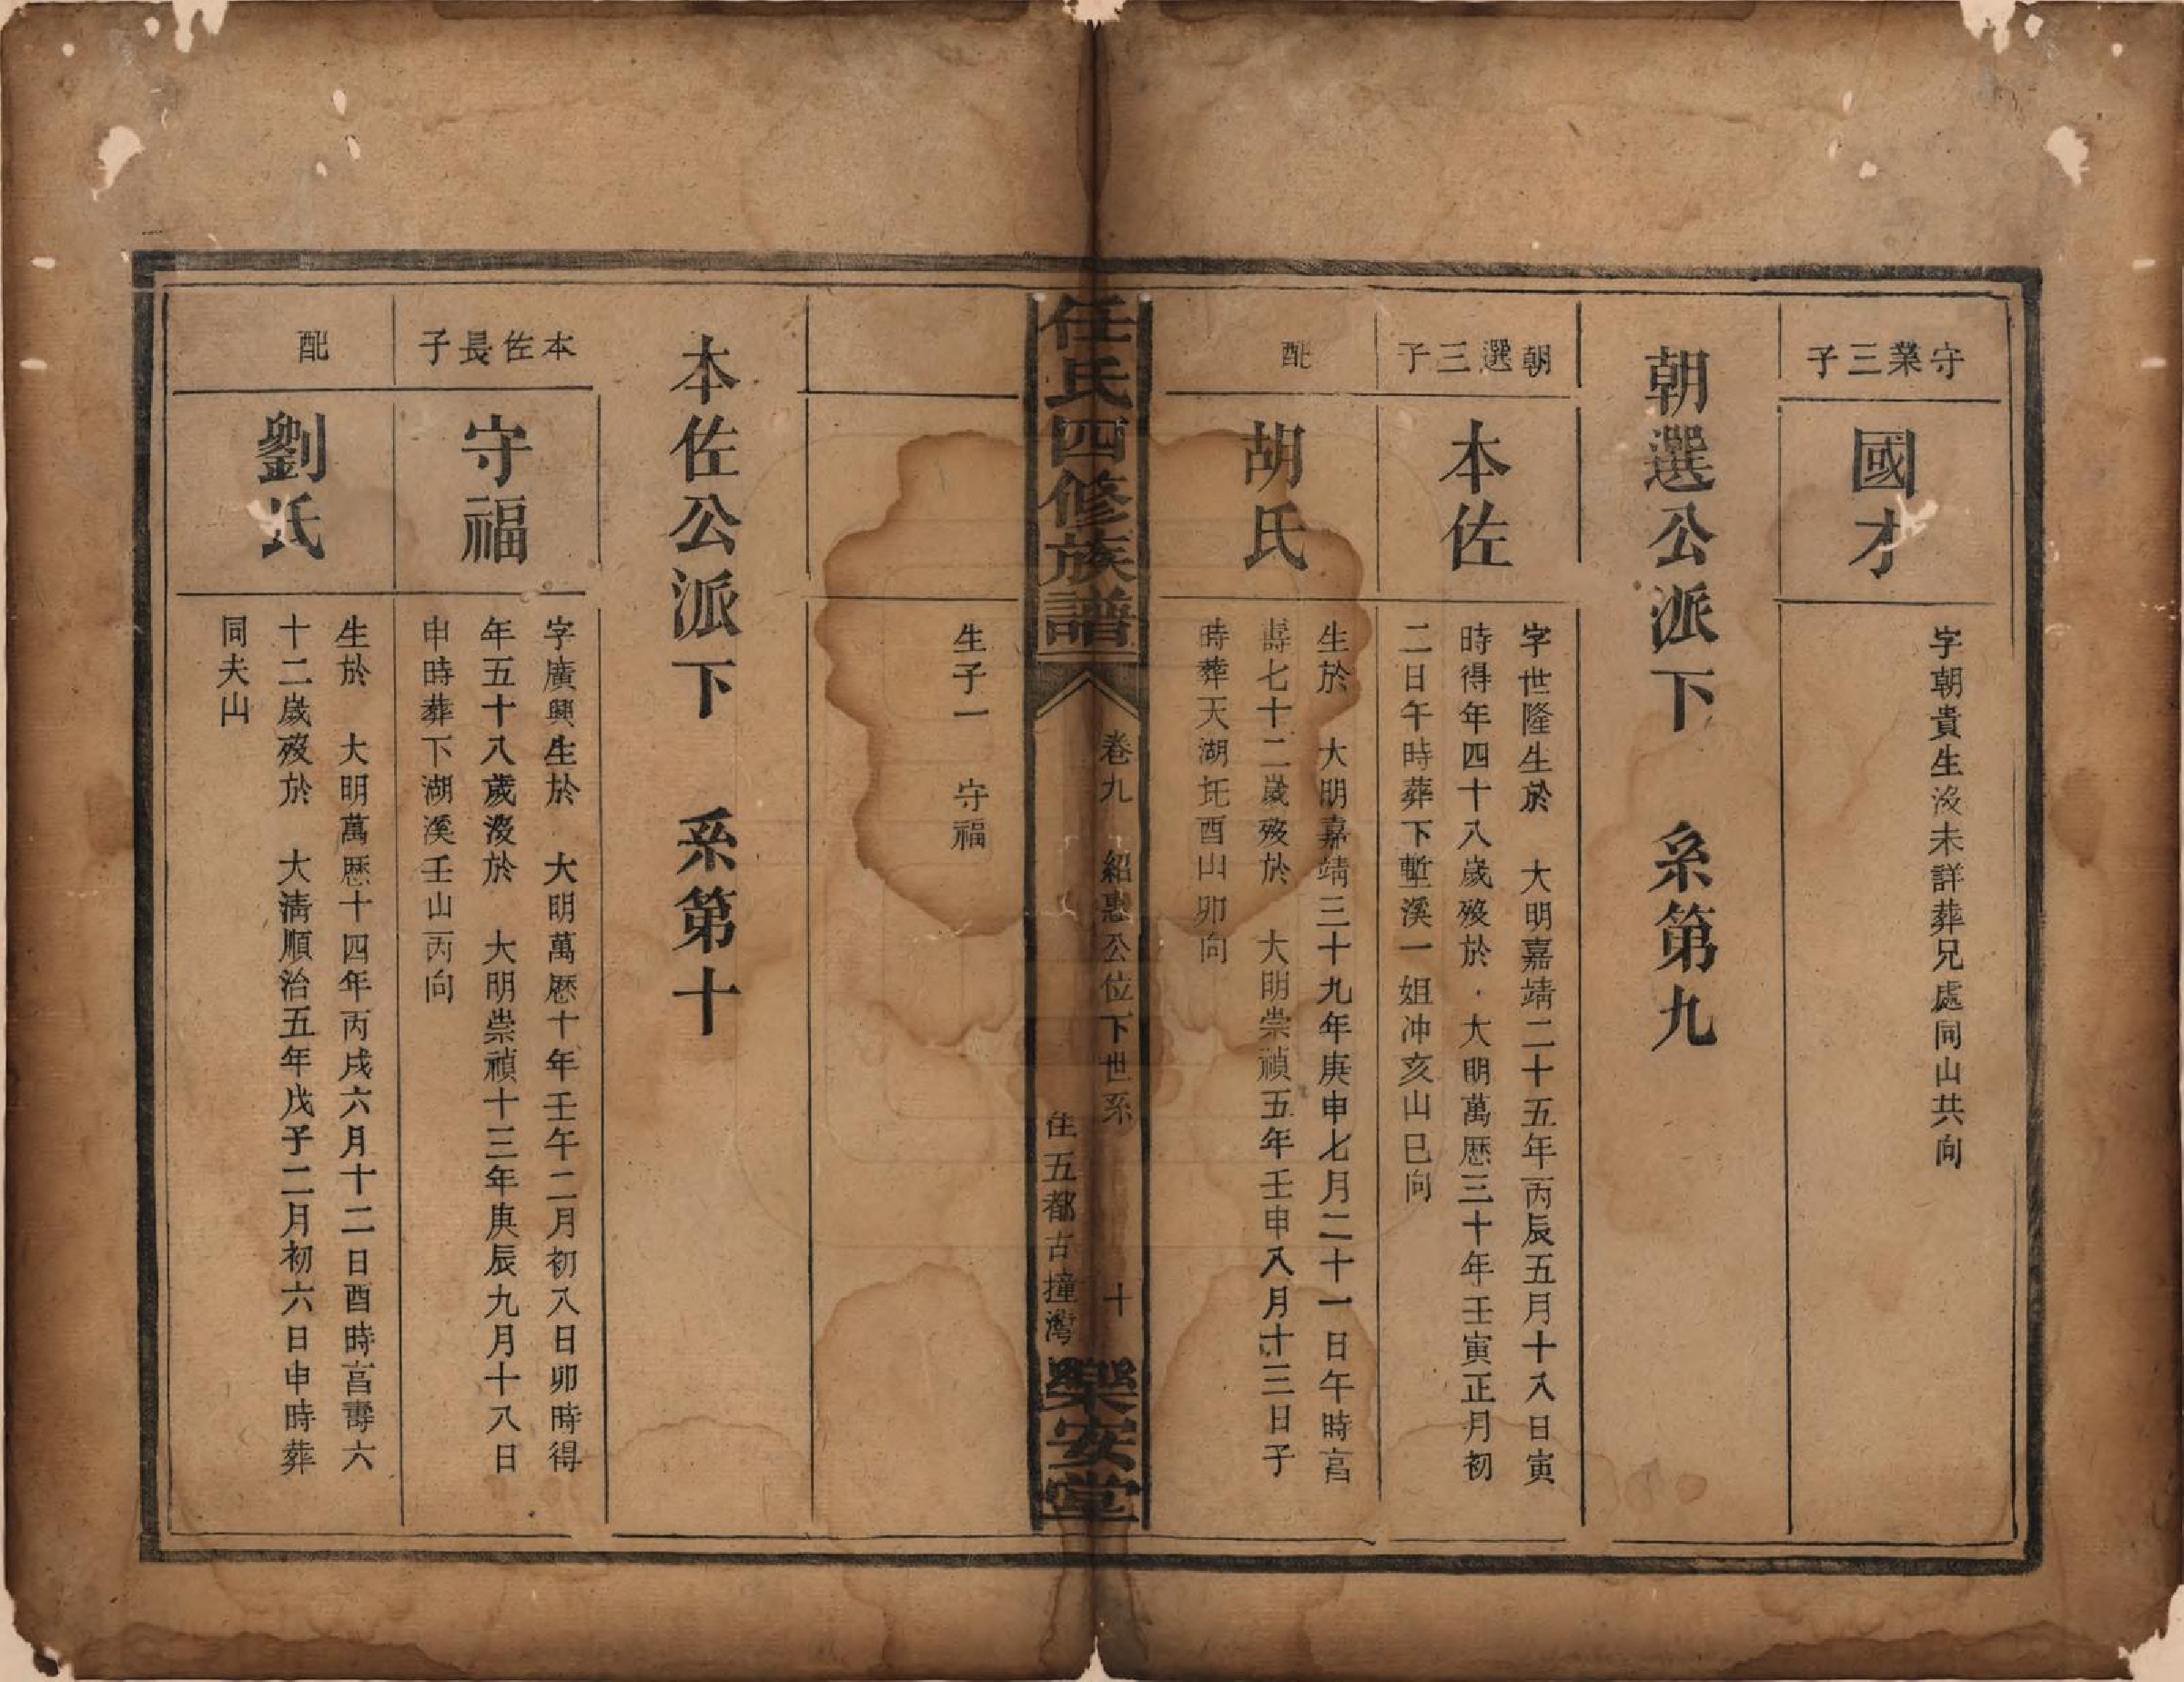 守業三子
國才
字朝貴生歿未詳葬兄處同山共向
朝選公派下　系第九
朝選三子
本佐
字世隆生於　大明嘉靖二十五年丙辰五月十八日寅
時得年四十八歲歿於　大明萬歷三十年壬寅正月初
二日午時葬下塹溪一姐冲亥山巳向
配
胡氏
生於　大明嘉靖三十九年庚申七月二十一日午時享
壽七十二歲歿於　大明崇禎五年壬申八月十三日子
時葬天湖坵酉山卯向
任氏四修族譜
卷九　紹惠公位下世系　十
住五都古撞灣
樂安堂
生子一　守福
本佐公派下　系第十
本佐長子
守福
字廣興生於　大明萬歷十年壬午二月初八日卯時得
年五十八歲歿於　大明崇禎十三年庚辰九月十八日
申時葬下湖溪壬山丙向
配
劉氏
生於　大明萬歷十四年丙戌六月十二日酉時享壽六
十二歲歿於　大清順治五年戊子二月初六日申時葬
同夫山